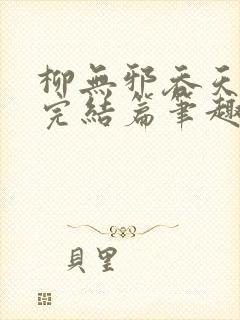 柳無邪吞天
完結篇筆趣
貝里